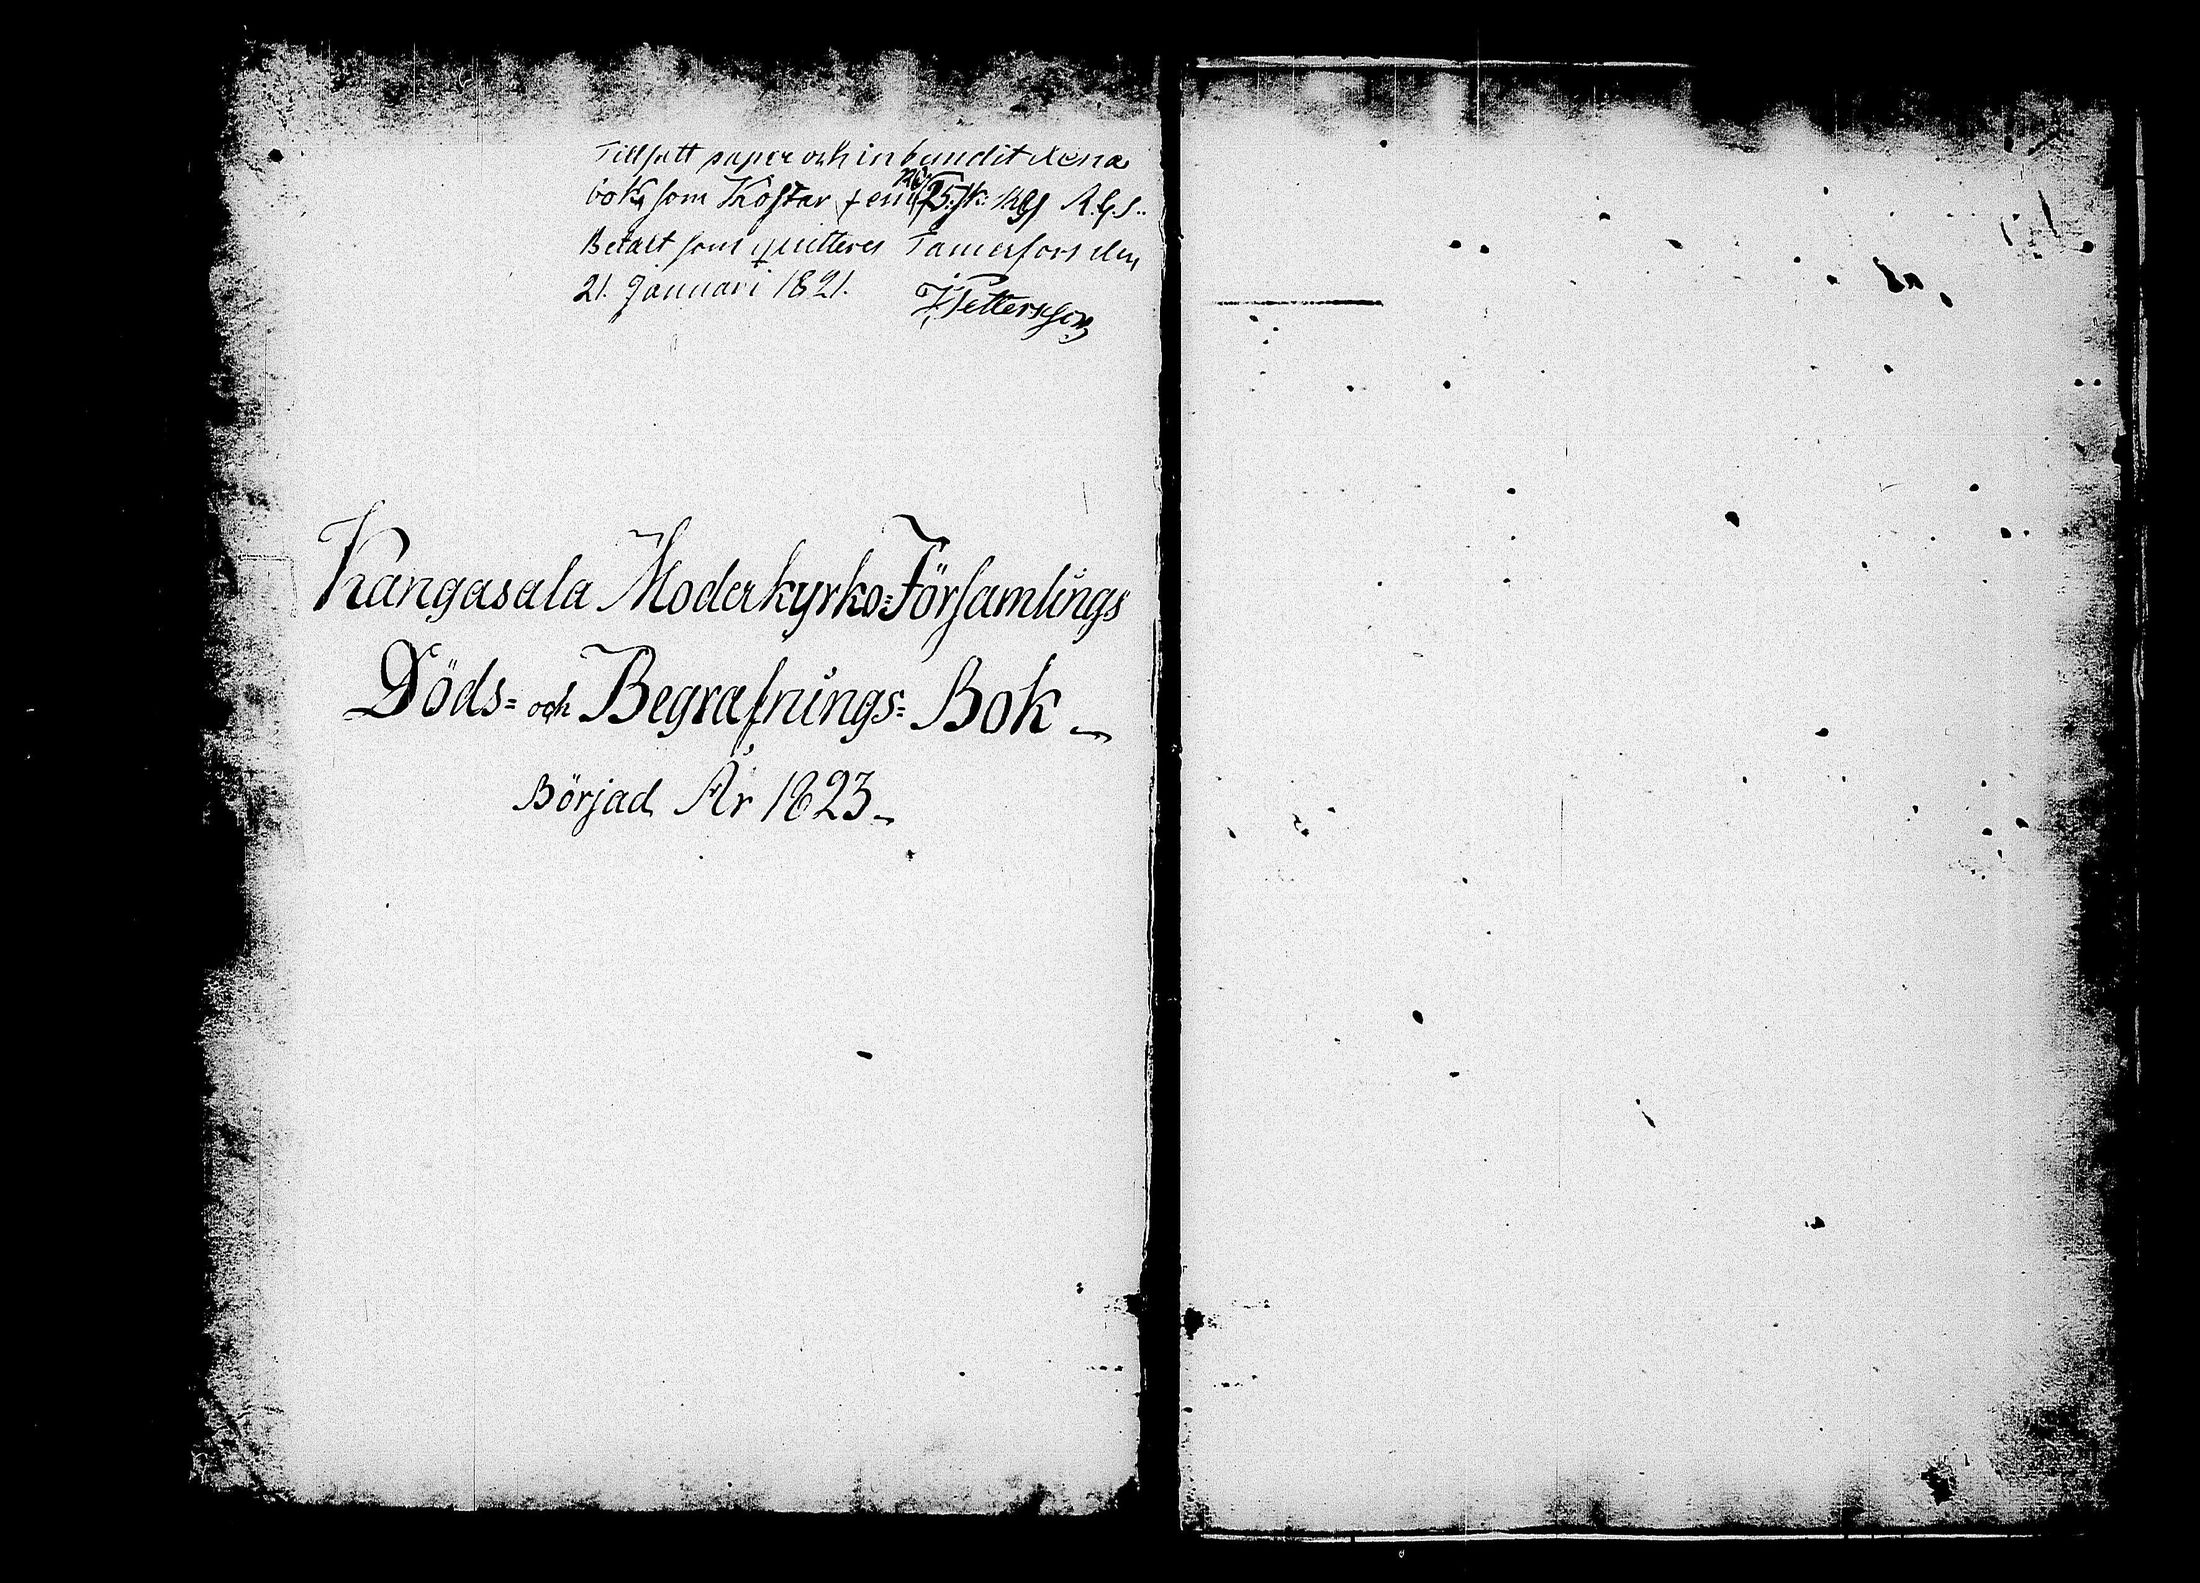 Tillsatt paper och inbundit dena
bok, som Kostar fem 25 sk: Rgs R.G.S.
Betalt som qvitteres Tamerfors den
21. Januari 1821.
J. Pettersson
Kangasala Moderkyrko=Församlings
Döds= och Begrafnings= Bok
Börjad År 1823